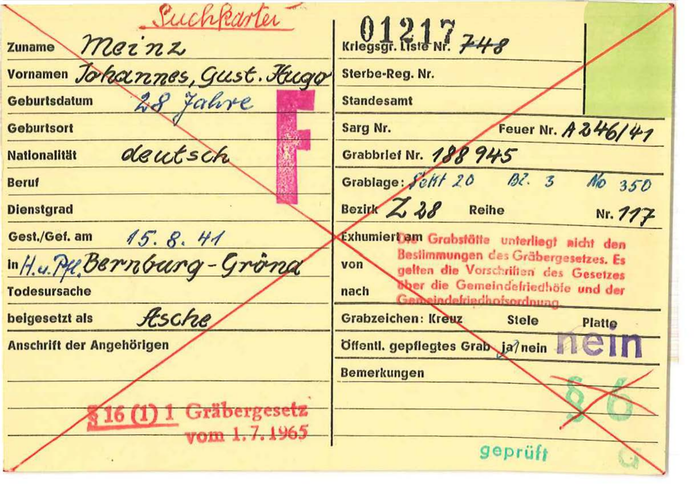 Suchkartei
Zuname Meinz
Vornamen Johannes, Gust. Hugo
Geburtsdatum 28 Jahre
Geburtsort
Nationalität deutsch
Beruf
Dienstgrad
Gest./Gef. am 15.8.41
In H.u.Pfl. Bernburg-Gröna
Todesursache
beigesetzt als Asche
Anschrift der Angehörigen
F
§ 16 (1) 1 Gräbergesetz
vom 1.7.1965
01217
Kriegsgr. Liste Nr. 748
Sterbe-Reg. Nr.
Standesamt
Sarg Nr. Feuer Nr. A246/41
Grabbrief Nr. 188945
Grablage: Sekt 20 Bz. 3 No 350
Bezirk Z 28 Reihe Nr. 117
Exhumiert am
von
nach
Die Grabstätte unterliegt nicht den
Bestimmungen des Gräbergesetzes. Es
gelten die Vorschriften des Gesetzes
über die Gemeindefriedhöfe und der
Gemeindefriedhofsordnung.
Grabzeichen: Kreuz Stele Platte
Öffentl. gepflegtes Grab ja/nein nein
Bemerkungen
§ 6
G
geprüft